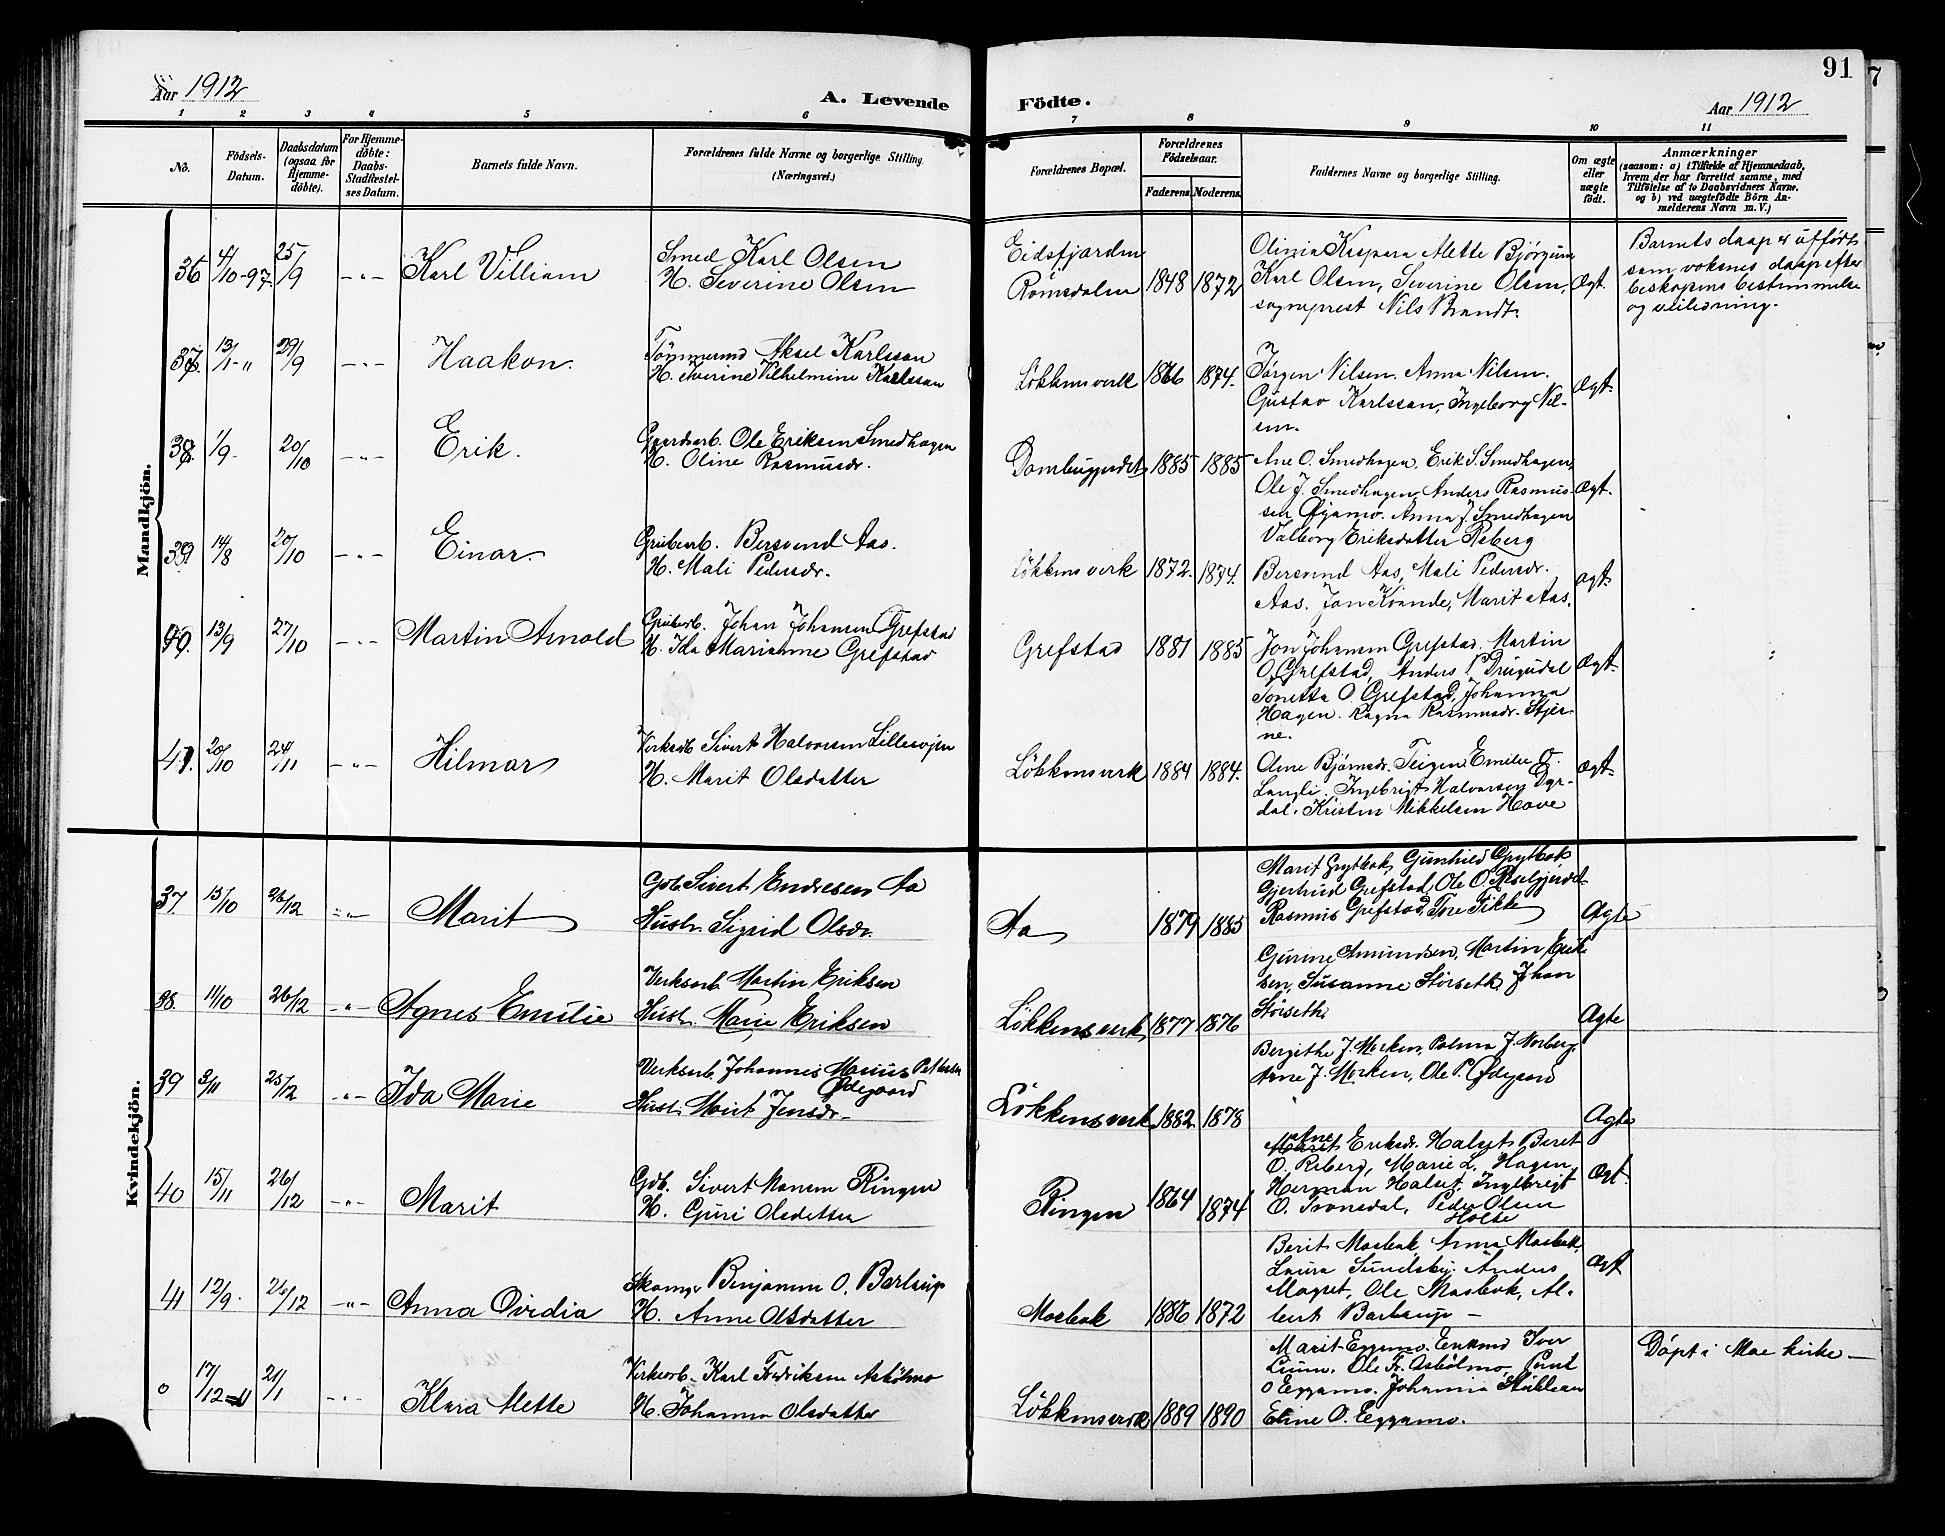 91
Aar 1912
A. Levende
Födte.
Aar 1912
1 2 3 4 5 6 7 8 9 10 11
No.
Födsels-
Datum.
Daabsdatum
(ogsaa for
Hjemme-
döbte).
For Hjemme-
döbte:
Daabs-
Stadfæstel-
ses Datum.
Barnets fulde Navn.
Forældrenes fulde Navne og borgerlige Stilling
(Næringsvei.)
Forældrenes Bopæl.
Forældrenes
Födselsaar.
Faderens. Moderens.
Faddernes Navne og borgerlige Stilling.
Om ægte
eller
uægte
født.
Anmærkninger
(saasom: a) i Tilfælde af Hjemmedaab,
hvem der har forrettet samme, med
Tilföielse af to Daabsvidners Navne.
og b) ved uægtefödte Börn An-
melderens Navn m. V.)
Mandkjön.
36 4/10-97 25/9 -"- Karl Villiam
Smed Karl Olsen
H. Severine Olsen
Eidsfjorden
Romsdalen 1848 1872
Olinia Kaspara Mette Bjørgum
Karl Olsen, Severine Olsen,
sogneprest Nils Brandt.
Ægt.
Barnets daap er utført
som voksnes daap efter
biskopens bestemmelse
og veiledning.
37. 13/1-" 29/9 -"- Haakon.
Tömmermd Aksel Karlsson
H. Iverine Vilhelmine Karlsson
Løkkensverk 1866 1874.
Jørgen Nilsen. Anna Nilsen.
Gustav Karlsson, Ingeborg Nil-
sen.
Ægt.
38. 1/9. 20/10 -"- Erik.
Gaardarb. Ole Eriksen Smedhagen
H. Oline Rasmusdr.
1885 1885
Ane O. Smedhagen. Erik S. Smedhagen,
Ole J. Smedhagen, Anders Rasmus-
sen Øyamo. Anna J. Smedhagen
Valborg Eriksdatter Reberg
Ægt.
39 14/8 20/10 -"- Einar.
Grubearb. Bersvend Aas.
H. Mali Pedersdr.
Løkkensverk 1872. 1874.
Bersvend Aas, Mali Pedersdr.
Aas. Jon Kvande, Marit Aas.
Ægt.
40. 13/9 27/10 -"- Martin Arnold
Grubearb. Johan Johansen Grefstad
H. Ida Marianne Grefstad
Grefstad 1881 1885
Jon Johansen Grefstad. Martin
O. Grefstad, Anders P. Drugudal
Tonetta O. Grefstad, Johanna
Hagen. Ragna Rasmusdr. Stjer-
ne.
Ægt.
41. 20/10 24/11 -"- Hilmar
Verksarb Sivert Halvorsen Lillesvjen
H. Marit Olsdatter
Løkkensverk 1884 1884.
Oline Bjørnsdr. Teigen Emilie O.
Langli. Ingebrigt Halvorsen Dyr-
dal. Kristen Mikkelsen Hove
Ægt.
Kvindekjön.
37. 15/10 26/12 -"- Marit
Gdb Sivert Endresen Aa
Hustr. Sigrid Olsdr.
Aa 1879 1885
Marit Grytbak, Gunhild Grytbak
Gjertrud Grefstad, Ole O.
Rasmus Grefstad, Tore Fikke
Ægte
38. 11/10 26/12 -"- Agnes Emilie
Verksarb Martin Eriksen
Hustr. Marie Eriksen
Løkkensverk 1877 1876
Gurine Amundsen, Martin Erik-
sen, Susanne Storseth, Johan
Storseth.
Ægte
39 3/11 25/12 -"- Ida Marie
Verksarb. Johannes Marius Pettersen
Ødegaard
Hust. Marit Jensdr.
Løkkensverk 1882 1878
Bergithe J. Morken, Palma J. Norberg,
Arne J. Morken, Ole P. Ødegaard
Ægte
40 15/11 26/12 -"- Marit
Gdb. Sivert Monsen Ringen
H. Guri Olsdatter
Ringen 1864 1874
Ane
Marit Eriksdr. Halset Beret
O. Reberg, Marie L. Hagen,
Herman Halset, Ingebrigt
O. Tronsdal, Peder Olsen
Holte
Ægt.
41 12/9. 26/12 -"- Anna Ovidia
Skomgr Benjamin O. Bartrup
H. Anne Olsdatter
Mosbak 1886 1872
Berit Mosbak, Anna Mosbak,
Laura Sundsby. Anders
Mogset, Ole Mosbak, Al-
bert Bartrup -
Ægt
0 17/12-11 21/1 -"- Klara Mette
Verksarb. Karl Fredriksen Asbölmo
H. Johanna Olsdatter
Løkkensverk 1889 1890
Marit Eggamo. Enkemd Iver
Lium, Ole Fr. Asbölmo,
O Eggamo. Johanna Stubleau
Eline O. Eggamo.
Döpt i Moe kirke -